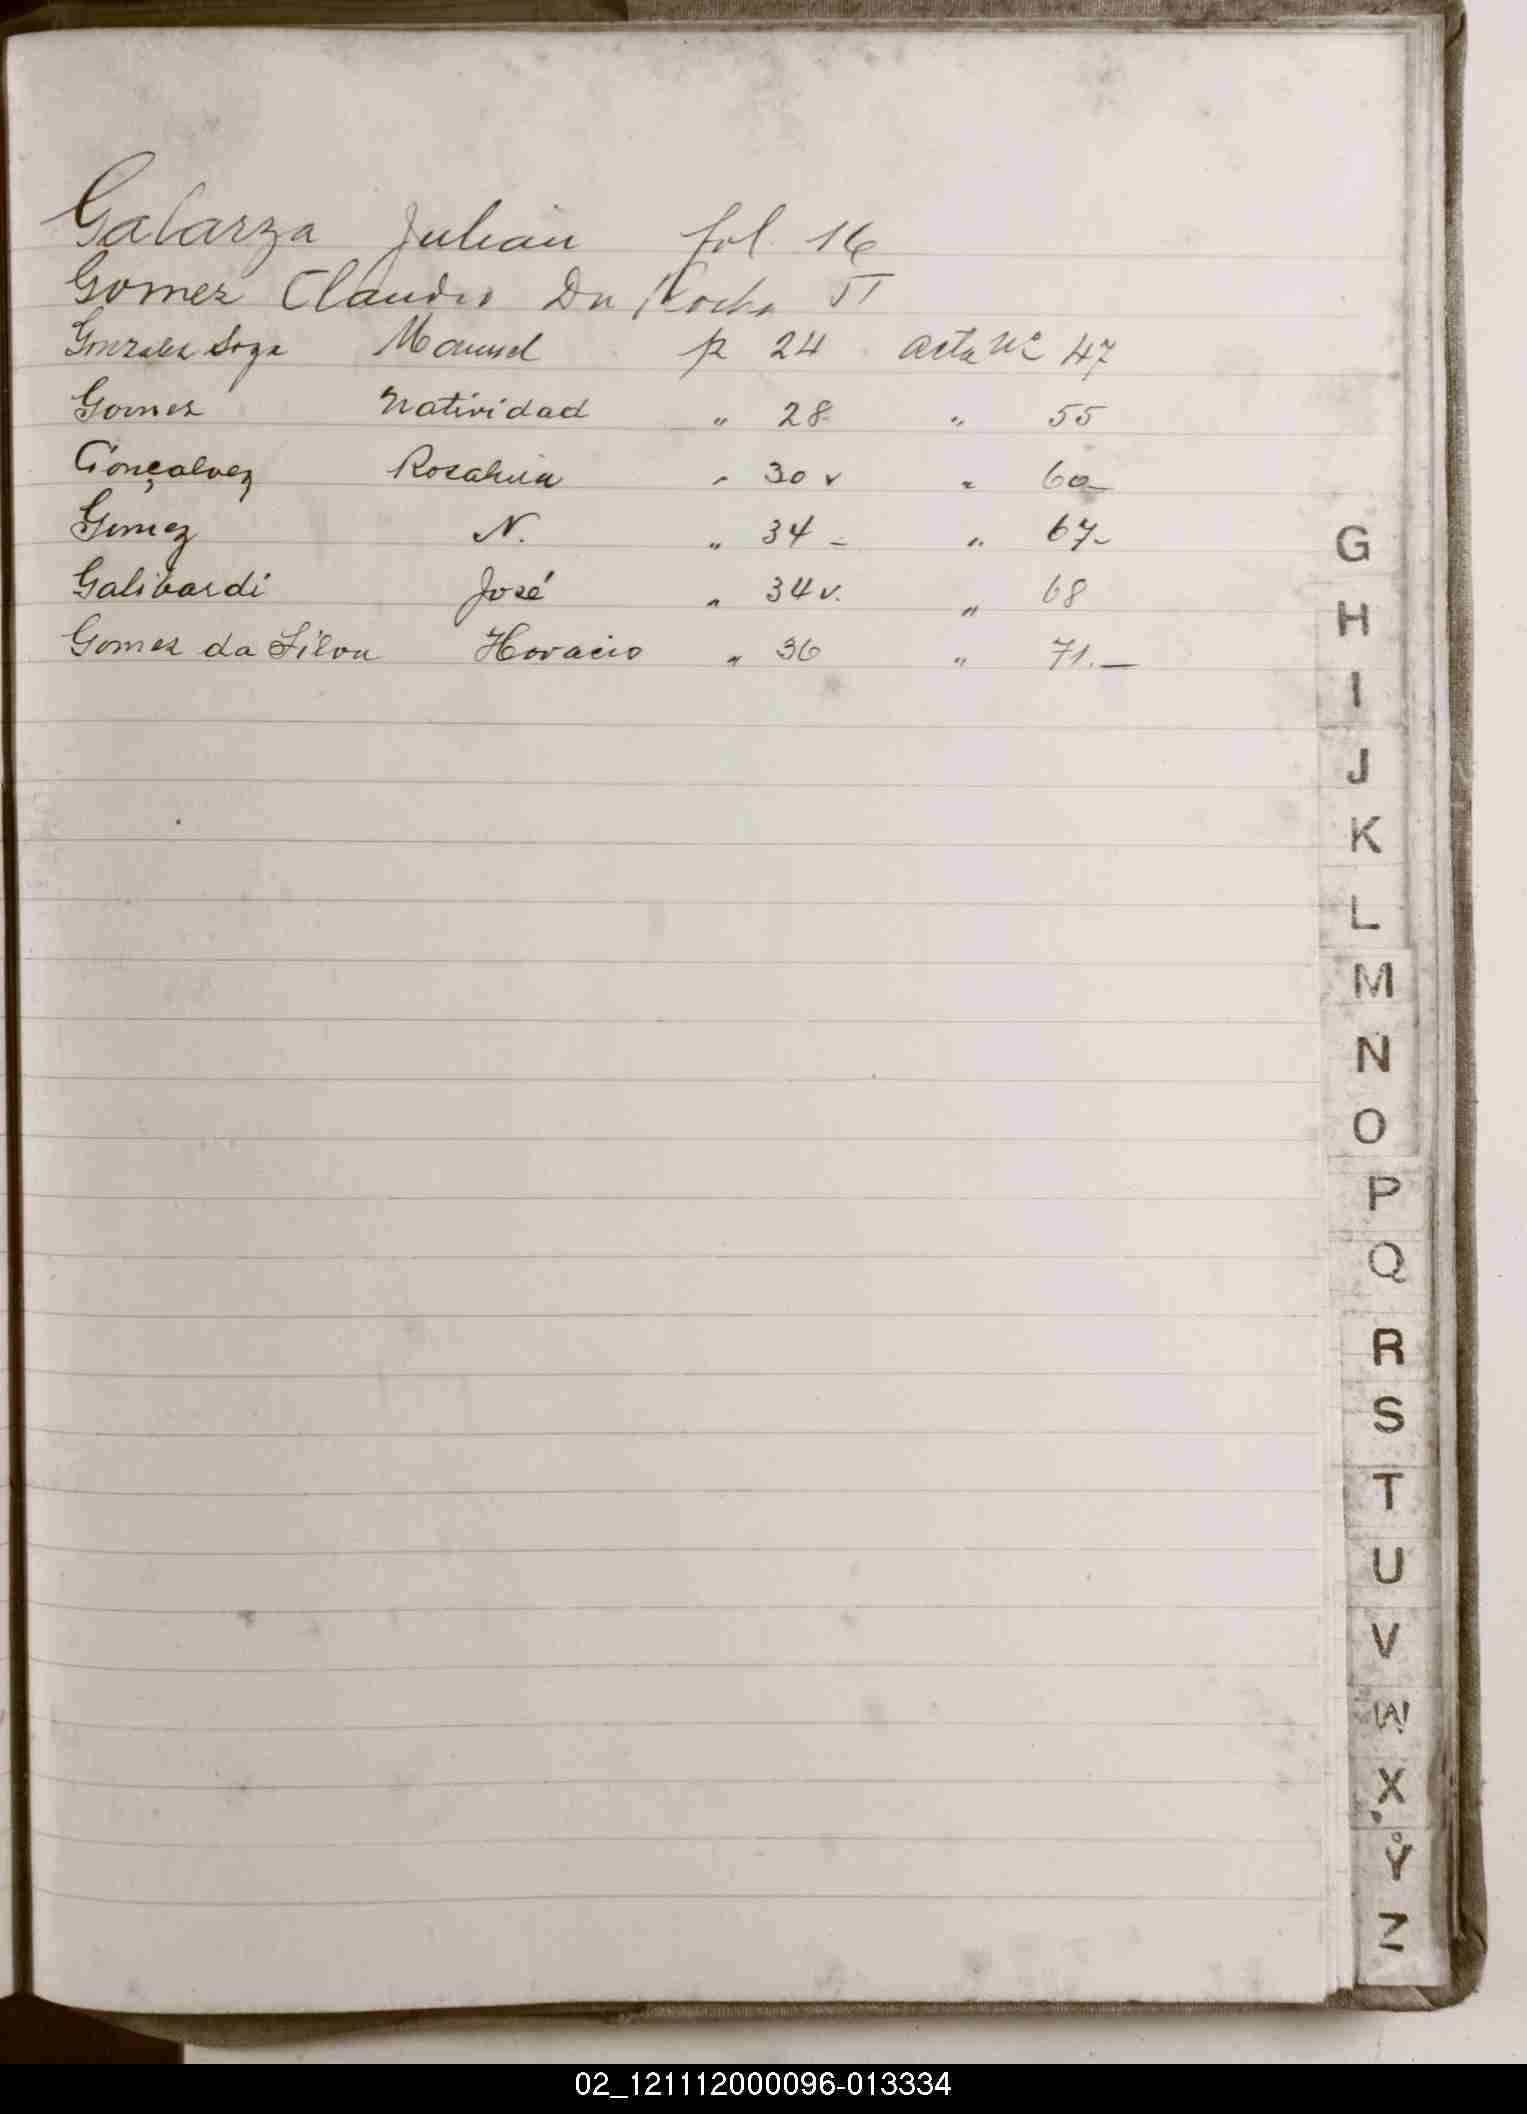 Galarza Julian fol. 16
Gomez Claudio Da Rocha 51
Gonzalez Soza Manuel p 24 acta Nº 47
Gomez Natividad " 28 " 55
Gonçalvez Rosalina " 30 v " 60-
Gomez N. " 34 - " 67-
Galibardi José " 34 v. " 68
Gomez da Silva Horacio " 36 " 71.-
G
H
I
J
K
L
M
N
O
P
Q
R
S
T
U
V
W
X
Y
Z
02_121112000096-013334